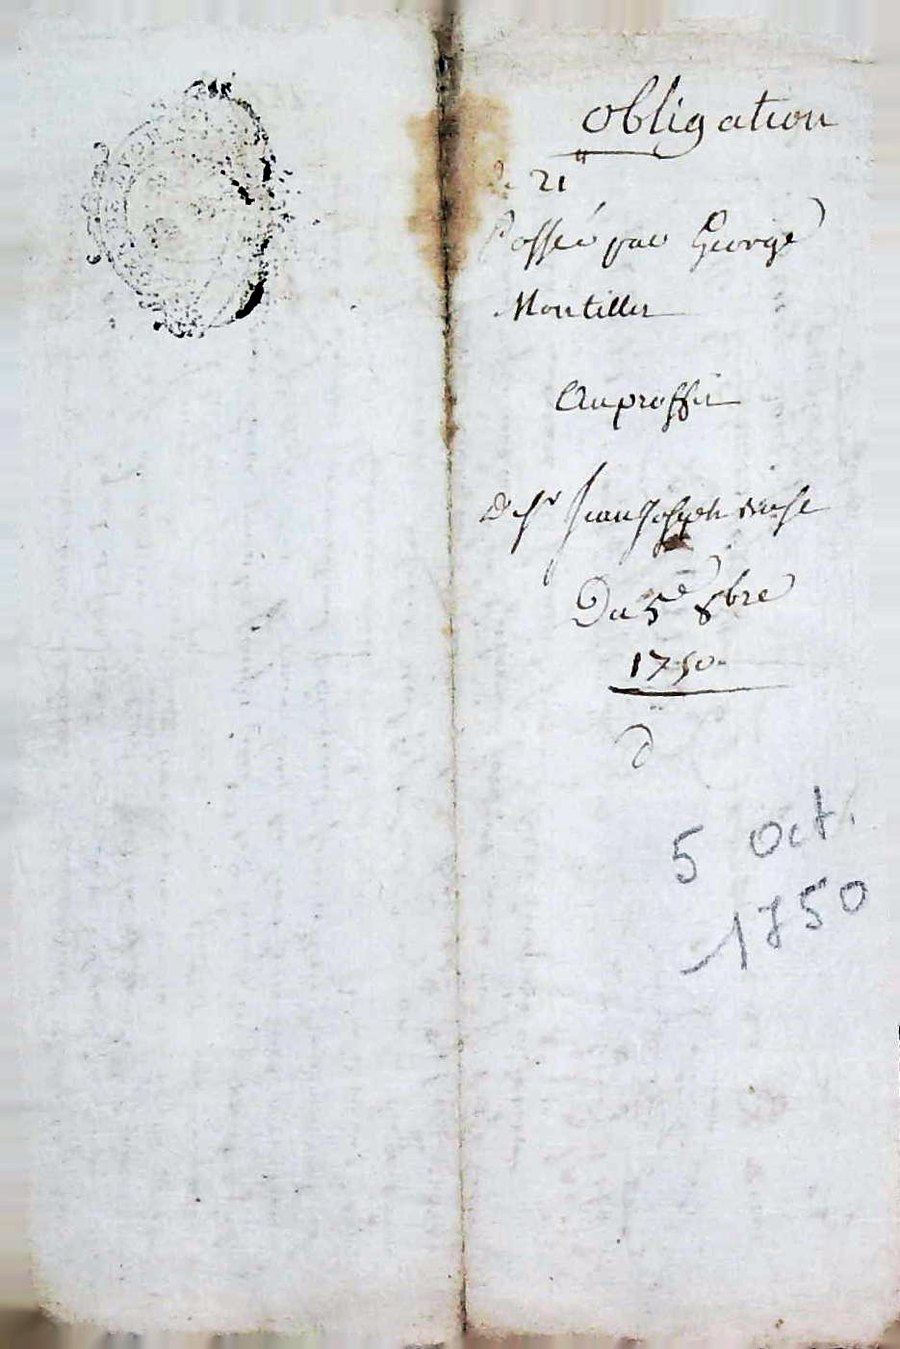 obligation
de 21 ₶
Passée par George
Montiller
Au proffit
De Sr Jean Joseph
Du 5e 8bre
1750
5 oct.
1750